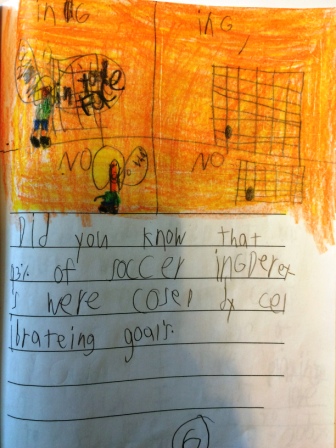 in G
inG
NO
NO
Did you know that
of soccer inGDerex
s were coseD by cel
ibrateing goals.
6